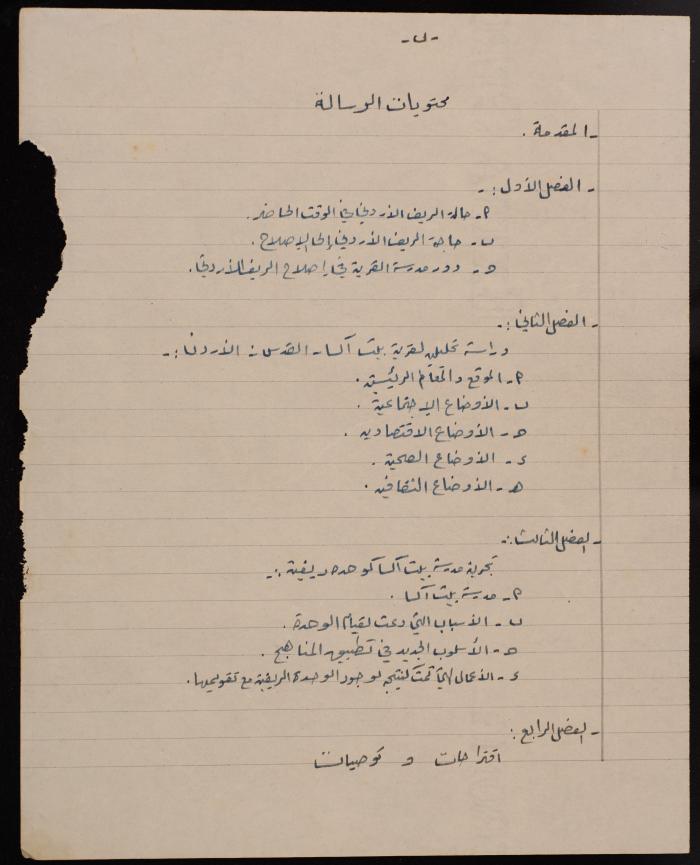 - ب -
محتويات الرسالة
- المقدمة .
- الفصل الأول : -
أ - حالة الريف الأردني في الوقت الحاضر .
ب - حاجة الريف الأردني إلى الإصلاح .
ج - دور مدرسة القرية في إصلاح الريف الأردني .
- الفصل الثاني : -
دراسة تحليل لقرية بيت آكسا - القدس : الأردن : -
أ - الموقع والمعالم الرئيسية .
ب - الأوضاع الاجتماعية .
ج - الأوضاع الاقتصادية .
د - الأوضاع الصحية .
هـ - الأوضاع الثقافية .
- الفصل الثالث : -
تجربة مدرسة بيت آكسا كوحدة ريفية : -
أ - مدرسة بيت آكسا .
ب - الأسباب التي دعت لقيام الوحدة .
ج - الأسلوب الجديد في تطبيق المناهج .
د - الأعمال التي تمت كنتيجة لوجود الوحدة الريفية مع تقويمها .
- الفصل الرابع :
اقتراحات و توصيات